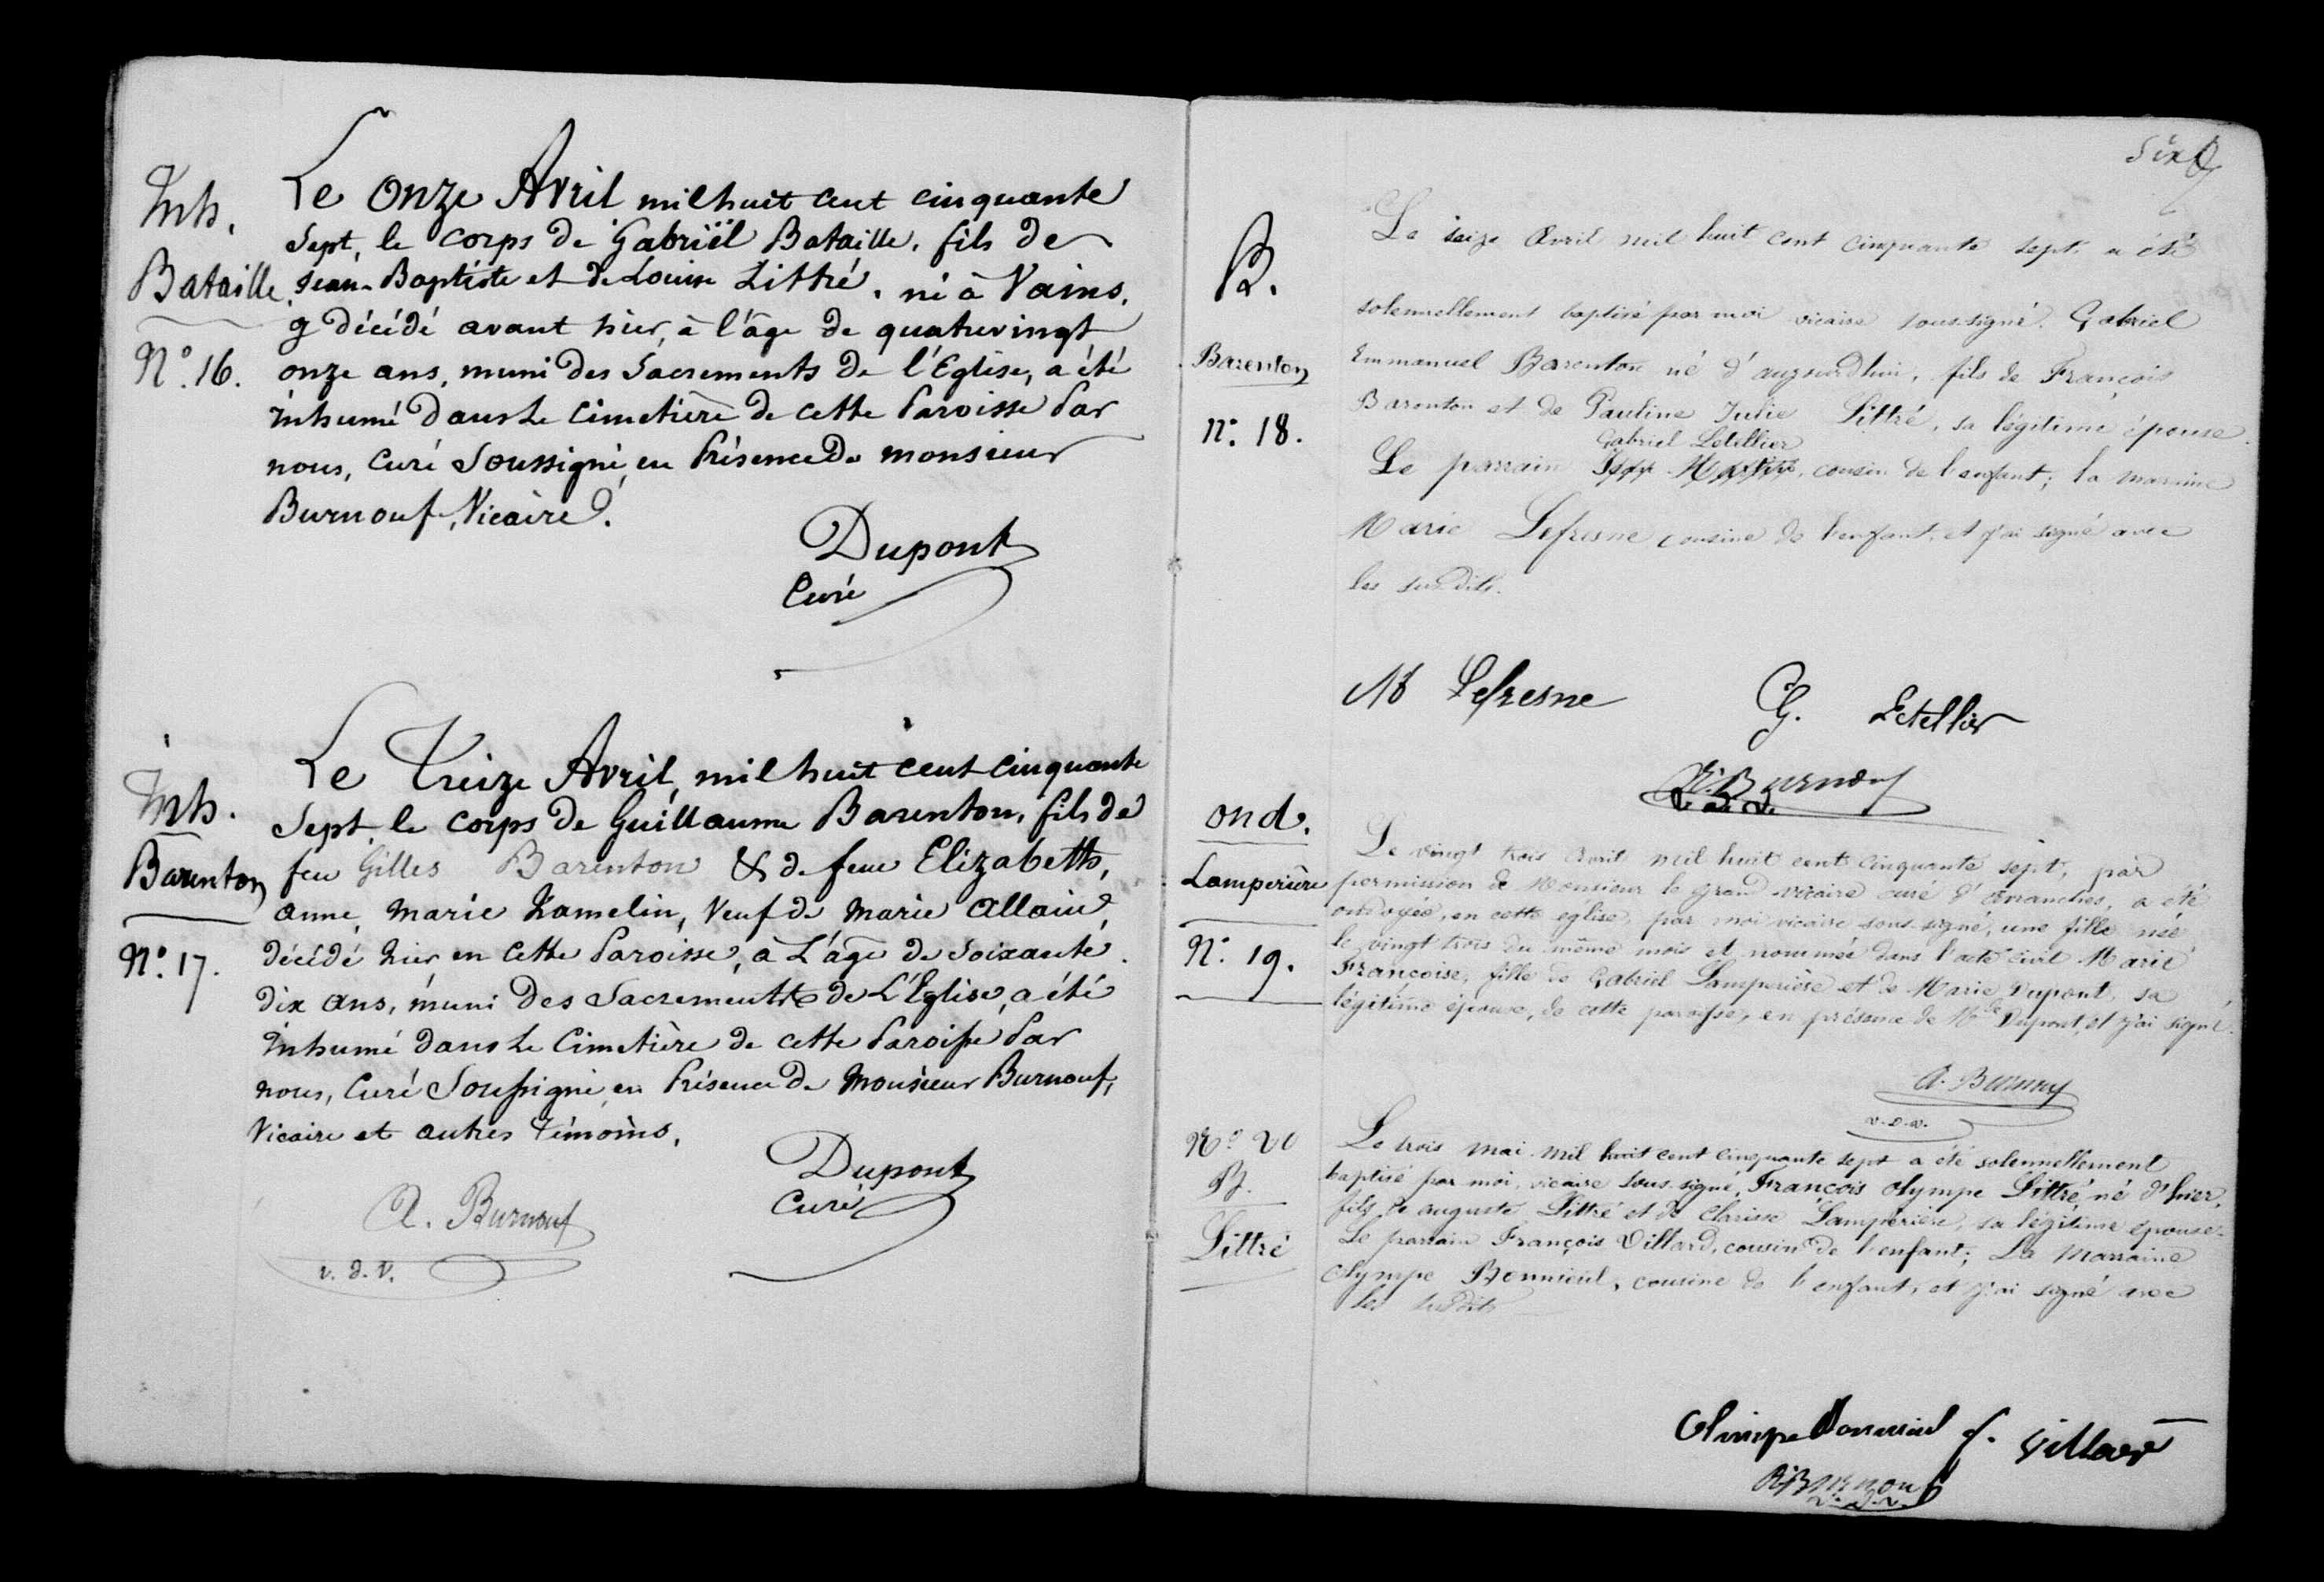 Inh.
Bataille
N.° 16.
Le onze Avril mil huit cent cinquante
Sept, le corps de Gabriël Bataille, fils de
Jean-Baptiste et de Louise Littré, né à Vains,
y décédé avant hier, à l'âge de quatrevingt
onze ans, muni des Sacrements de l'Eglise, a été
inhumé dans le cimetière de cette Paroisse Par
nous, Curé Soussigné, en Présence de monsieur
Burnouf, Vicaire.
Dupont
Curé
Inh.
Barenton
N.° 17.
Le Treize Avril, mil huit cent cinquante
Sept, le corps de Guillaume Barenton, fils de
feu Gilles Barenton & de feue Elizabeth,
anne, marie Hamelin, Veuf de Marie Allain,
décédé hier en cette Paroisse, à L'âge de soixante
dix ans, muni des Sacrements de L'Église, a été
inhumé dans le Cimetière de cette Paroisse Par
nous, Curé Soussigné, en Présence de Monsieur Burnouf,
Vicaire et autres témoins.
A. Burnouf
v. d. V.
Dupont
Curé
Six
B.
Barenton
n.° 18.
Le seize Avril mil huit cent cinquante sept, a été
solennellement baptisé par moi vicaire sous-signé, Gabriel
Emmanuel Barenton né d'aujourdhui, fils de François
Barenton et de Pauline Julie Littré, sa légitime épouse.
Gabriel Letellier
Le parrain cousin de l'enfant; la marraine
Marie Lefresne cousine de l'enfant, et j'ai signé avec
les susdits.
M Lefresne
G. Letellier
A. Burnouf
v. d. v.
ond.
Lamperière
N.° 19.
Le vingt trois Avril mil huit cent cinquante sept, par
permission de Monsieur le grand vicaire curé d'Avranches, a été
ondoyée, en cette église, par moi vicaire sous-signé, une fille née
le vingt trois du même mois et nommée dans l'acte civil Marie
Françoise, fille de Gabriel Lamperière et de Marie Dupont, sa
légitime épouse, de cette paroisse, en présence de Dupont, et j'ai signé.
A. Burnouf
v. d. v.
N.° 20
B.
Littré
Le trois mai mil huit cent cinquante sept a été solennellement
baptisé par moi, vicaire sous-signé, François Olympe Littré, né d'hier,
fils de auguste Littré et de Clarisse Lamperière, sa légitime épouse.
Le parrain François Villard, cousin de l'enfant; La marraine
Olympe Bonnieul, cousine de l'enfant, et j'ai signé avec
les susdits
Olimpe Bonnieul f. villard
A. Burnouf
v. d. v.